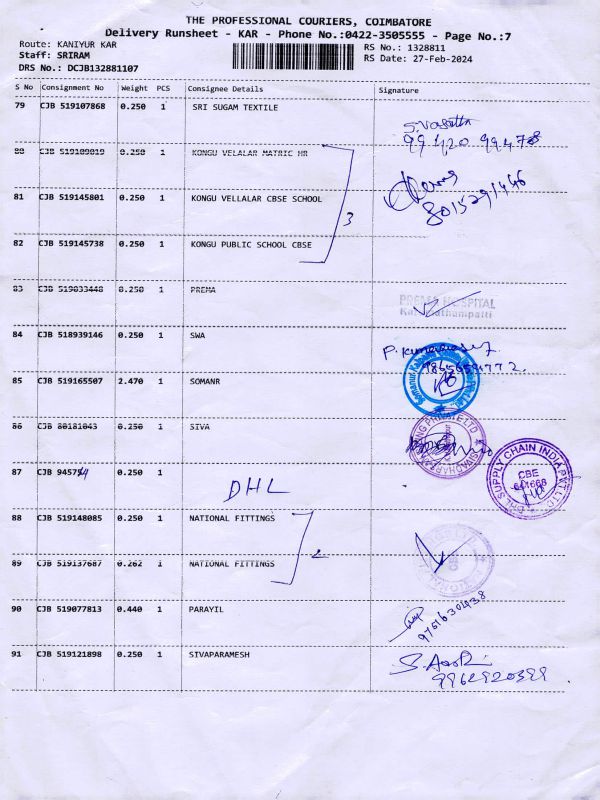 THE PROFESSIONAL COURIERS, COIMBATORE
Delivery Runsheet - KAR - Phone No.:0422-3505555 - Page No.:7
Route: KANIYUR KAR
RS No.: 1328811
Staff: SRIRAM
RS Date: 27-Feb-2024
DRS No.: DCJB132881107
S No Consignment No Weight PCS Consignee Details Signature
79 CJB 519107868 0.250 1 SRI SUGAM TEXTILE
99420 994708
80 CJB 519109019 0.250 1 KONGU VELALAR MATRIC HR
81 CJB 519145801 0.250 1 KONGU VELLALAR CBSE SCHOOL
3
8015291446
82 CJB 519145738 0.250 1 KONGU PUBLIC SCHOOL CBSE
83 CJB 519033448 0.250 1 PREMA
PREMA HOSPITAL
84 CJB 518939146 0.250 1 SWA
85 CJB 519165507 2.470 1 SOMANR
86 CJB 80181043 0.250 1 SIVA
87 CJB 94574 0.250 1
DHL
DHL SUPPLY CHAIN INDIA PVT LTD
CBE
88 CJB 519148085 0.250 1 NATIONAL FITTINGS
2
89 CJB 519137687 0.262 1 NATIONAL FITTINGS
90 CJB 519077813 0.440 1 PARAYIL
9761630438
91 CJB 519121898 0.250 1 SIVAPARAMESH
9962920399